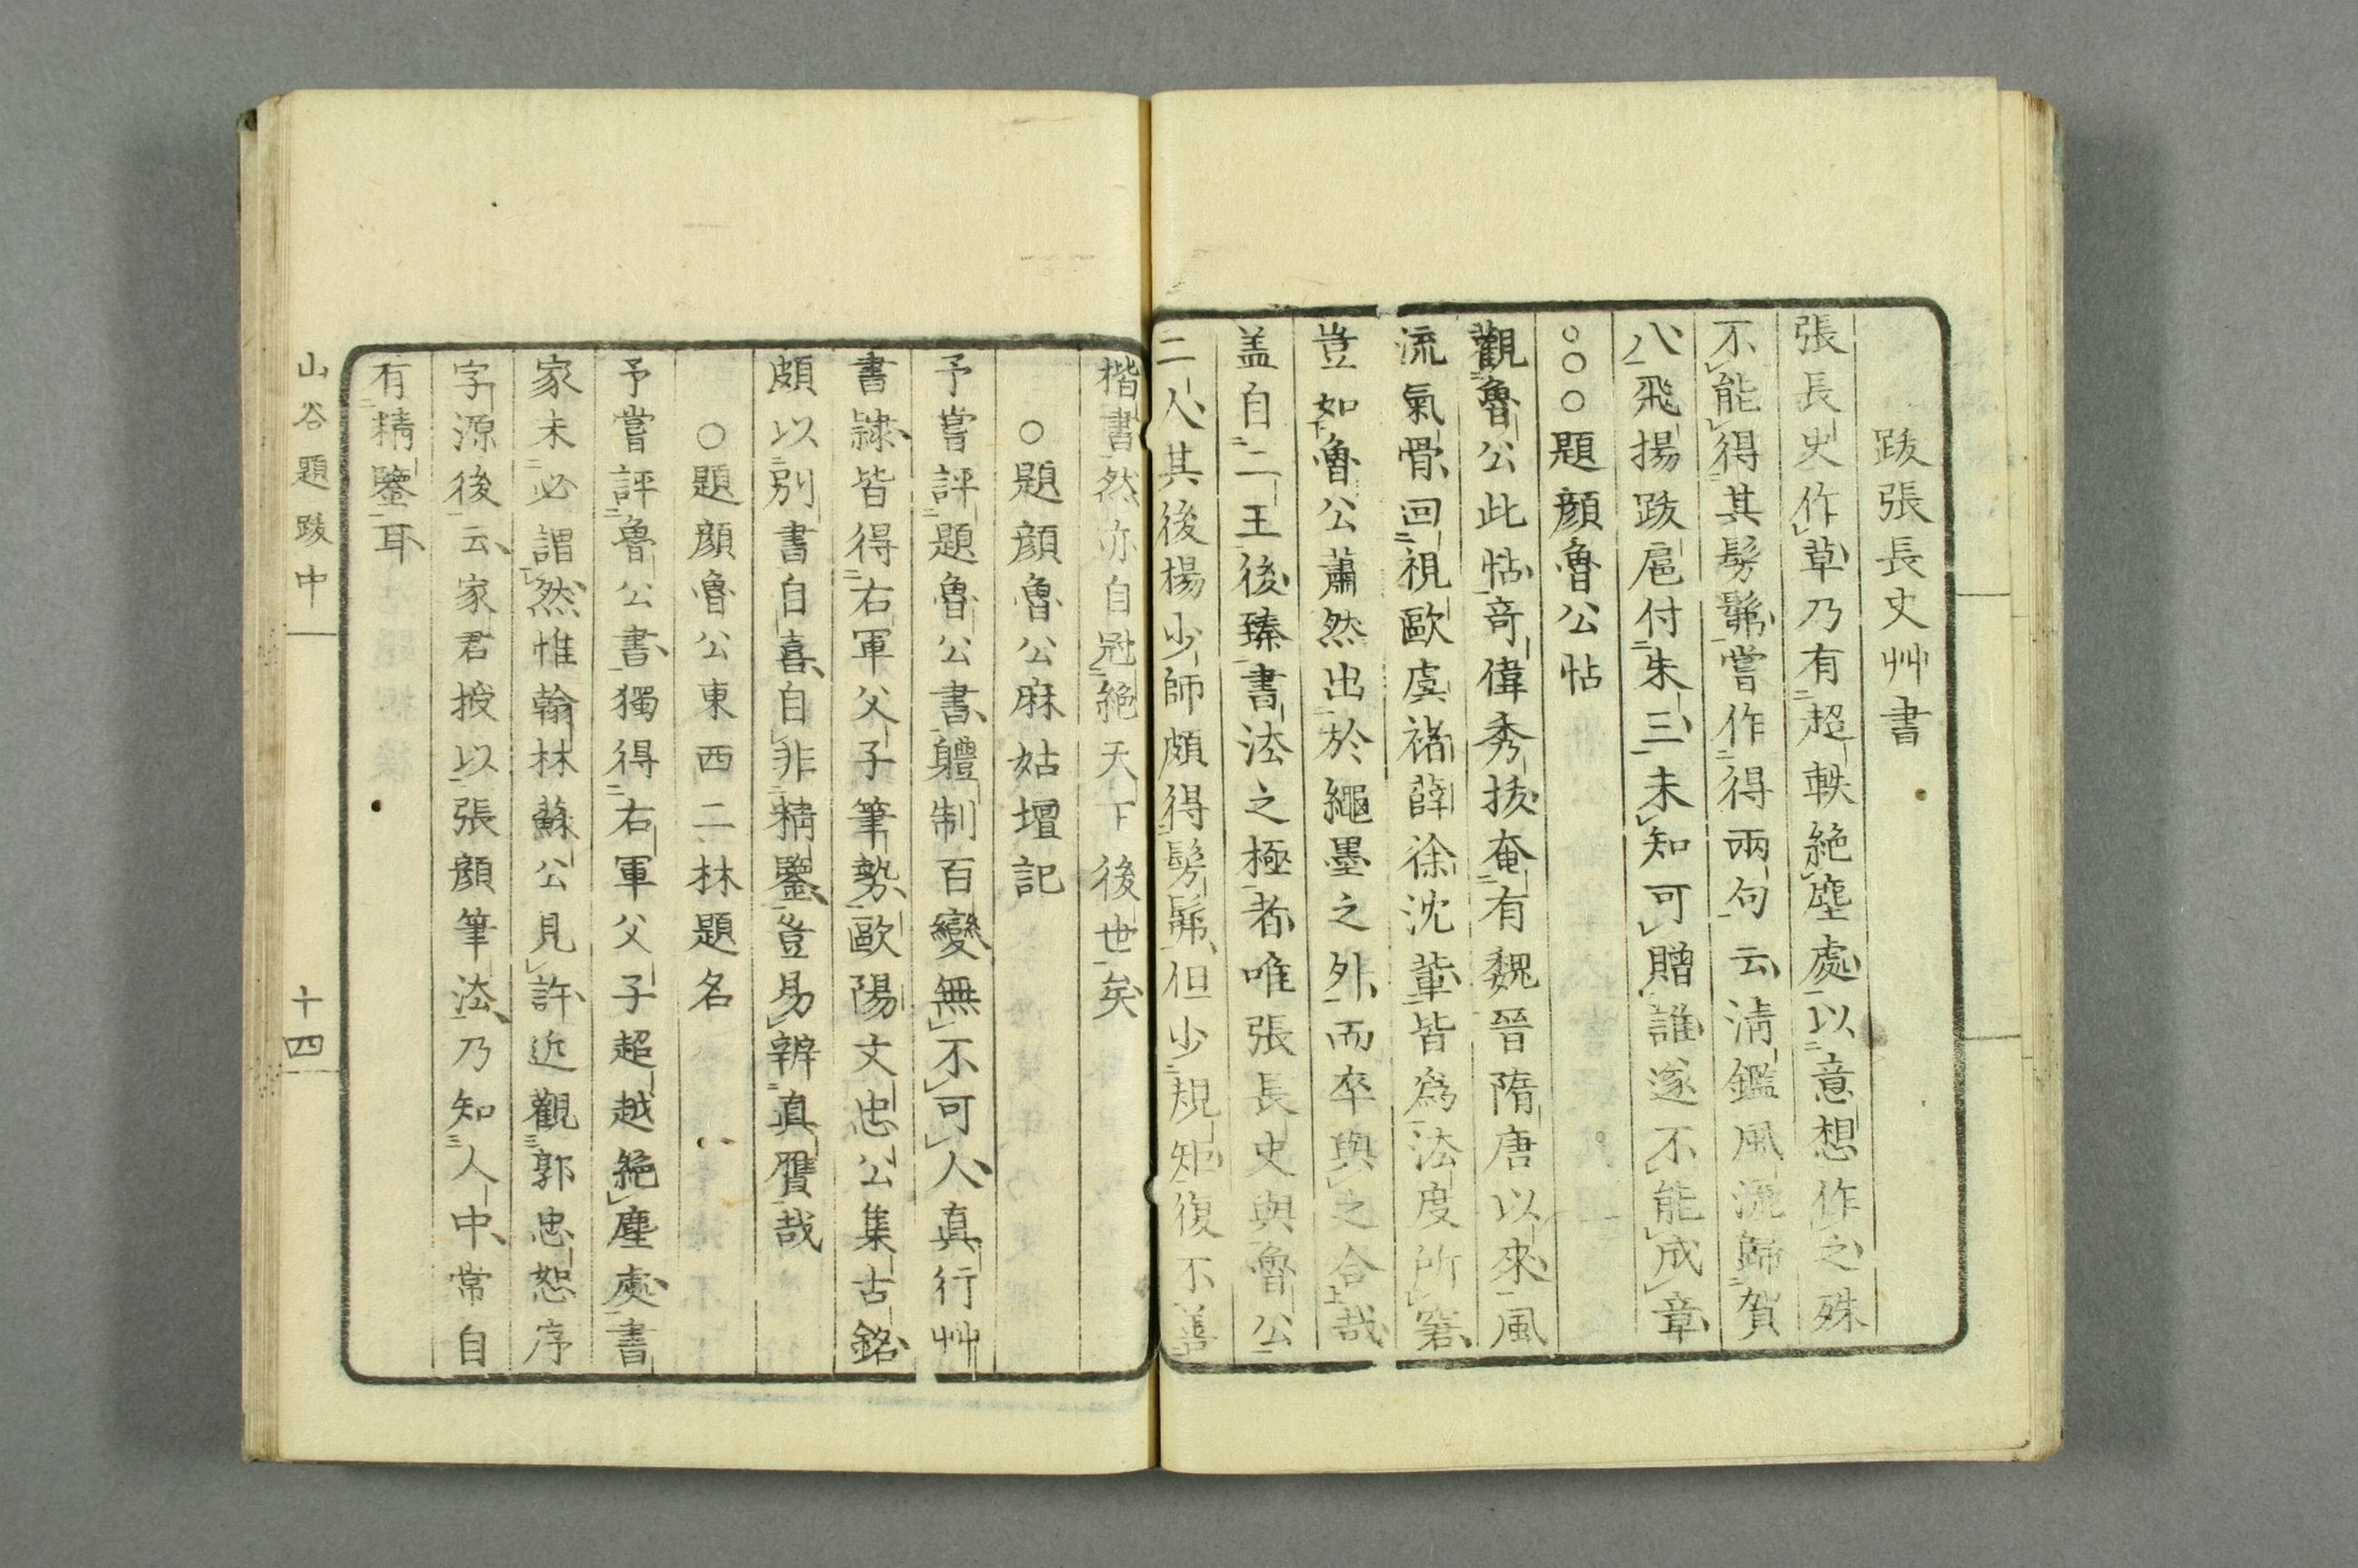 跋張長史艸書
張長史作草乃有超軼絶塵處以意想作之殊
不能得其髣髴嘗作得兩句云清鑑風流歸賀
八飛揚跋扈付朱三未知可贈誰遂不能成章
○○○題顔魯公帖
觀魯公此帖奇偉秀拔奄有魏晉隋唐以來風
流氣骨回視歐虞褚薛徐沈輩皆爲法度所窘
豈如魯公蕭然出於繩墨之外而卒與之合哉
盖自二王後臻書法之極者唯張長史與魯公
二人其後楊少師頗得髣髴但少規矩復不善
楷書然亦自冠絶天下後世矣
○題顔魯公麻姑壇記
予嘗評題魯公書體制百變無不可人真行艸
書隷皆得右軍父子筆勢歐陽文忠公集古銘
頗以別書自喜自非精鑒豈易辨真贋哉
○題顔魯公東西二林題名
予嘗評魯公書獨得右軍父子超越絶塵處書
家未必謂然惟翰林蘇公見許近觀郭忠恕序
字源後云家君授以張顔筆法乃知人中常自
有精鑒耳
山谷題跋中
十四